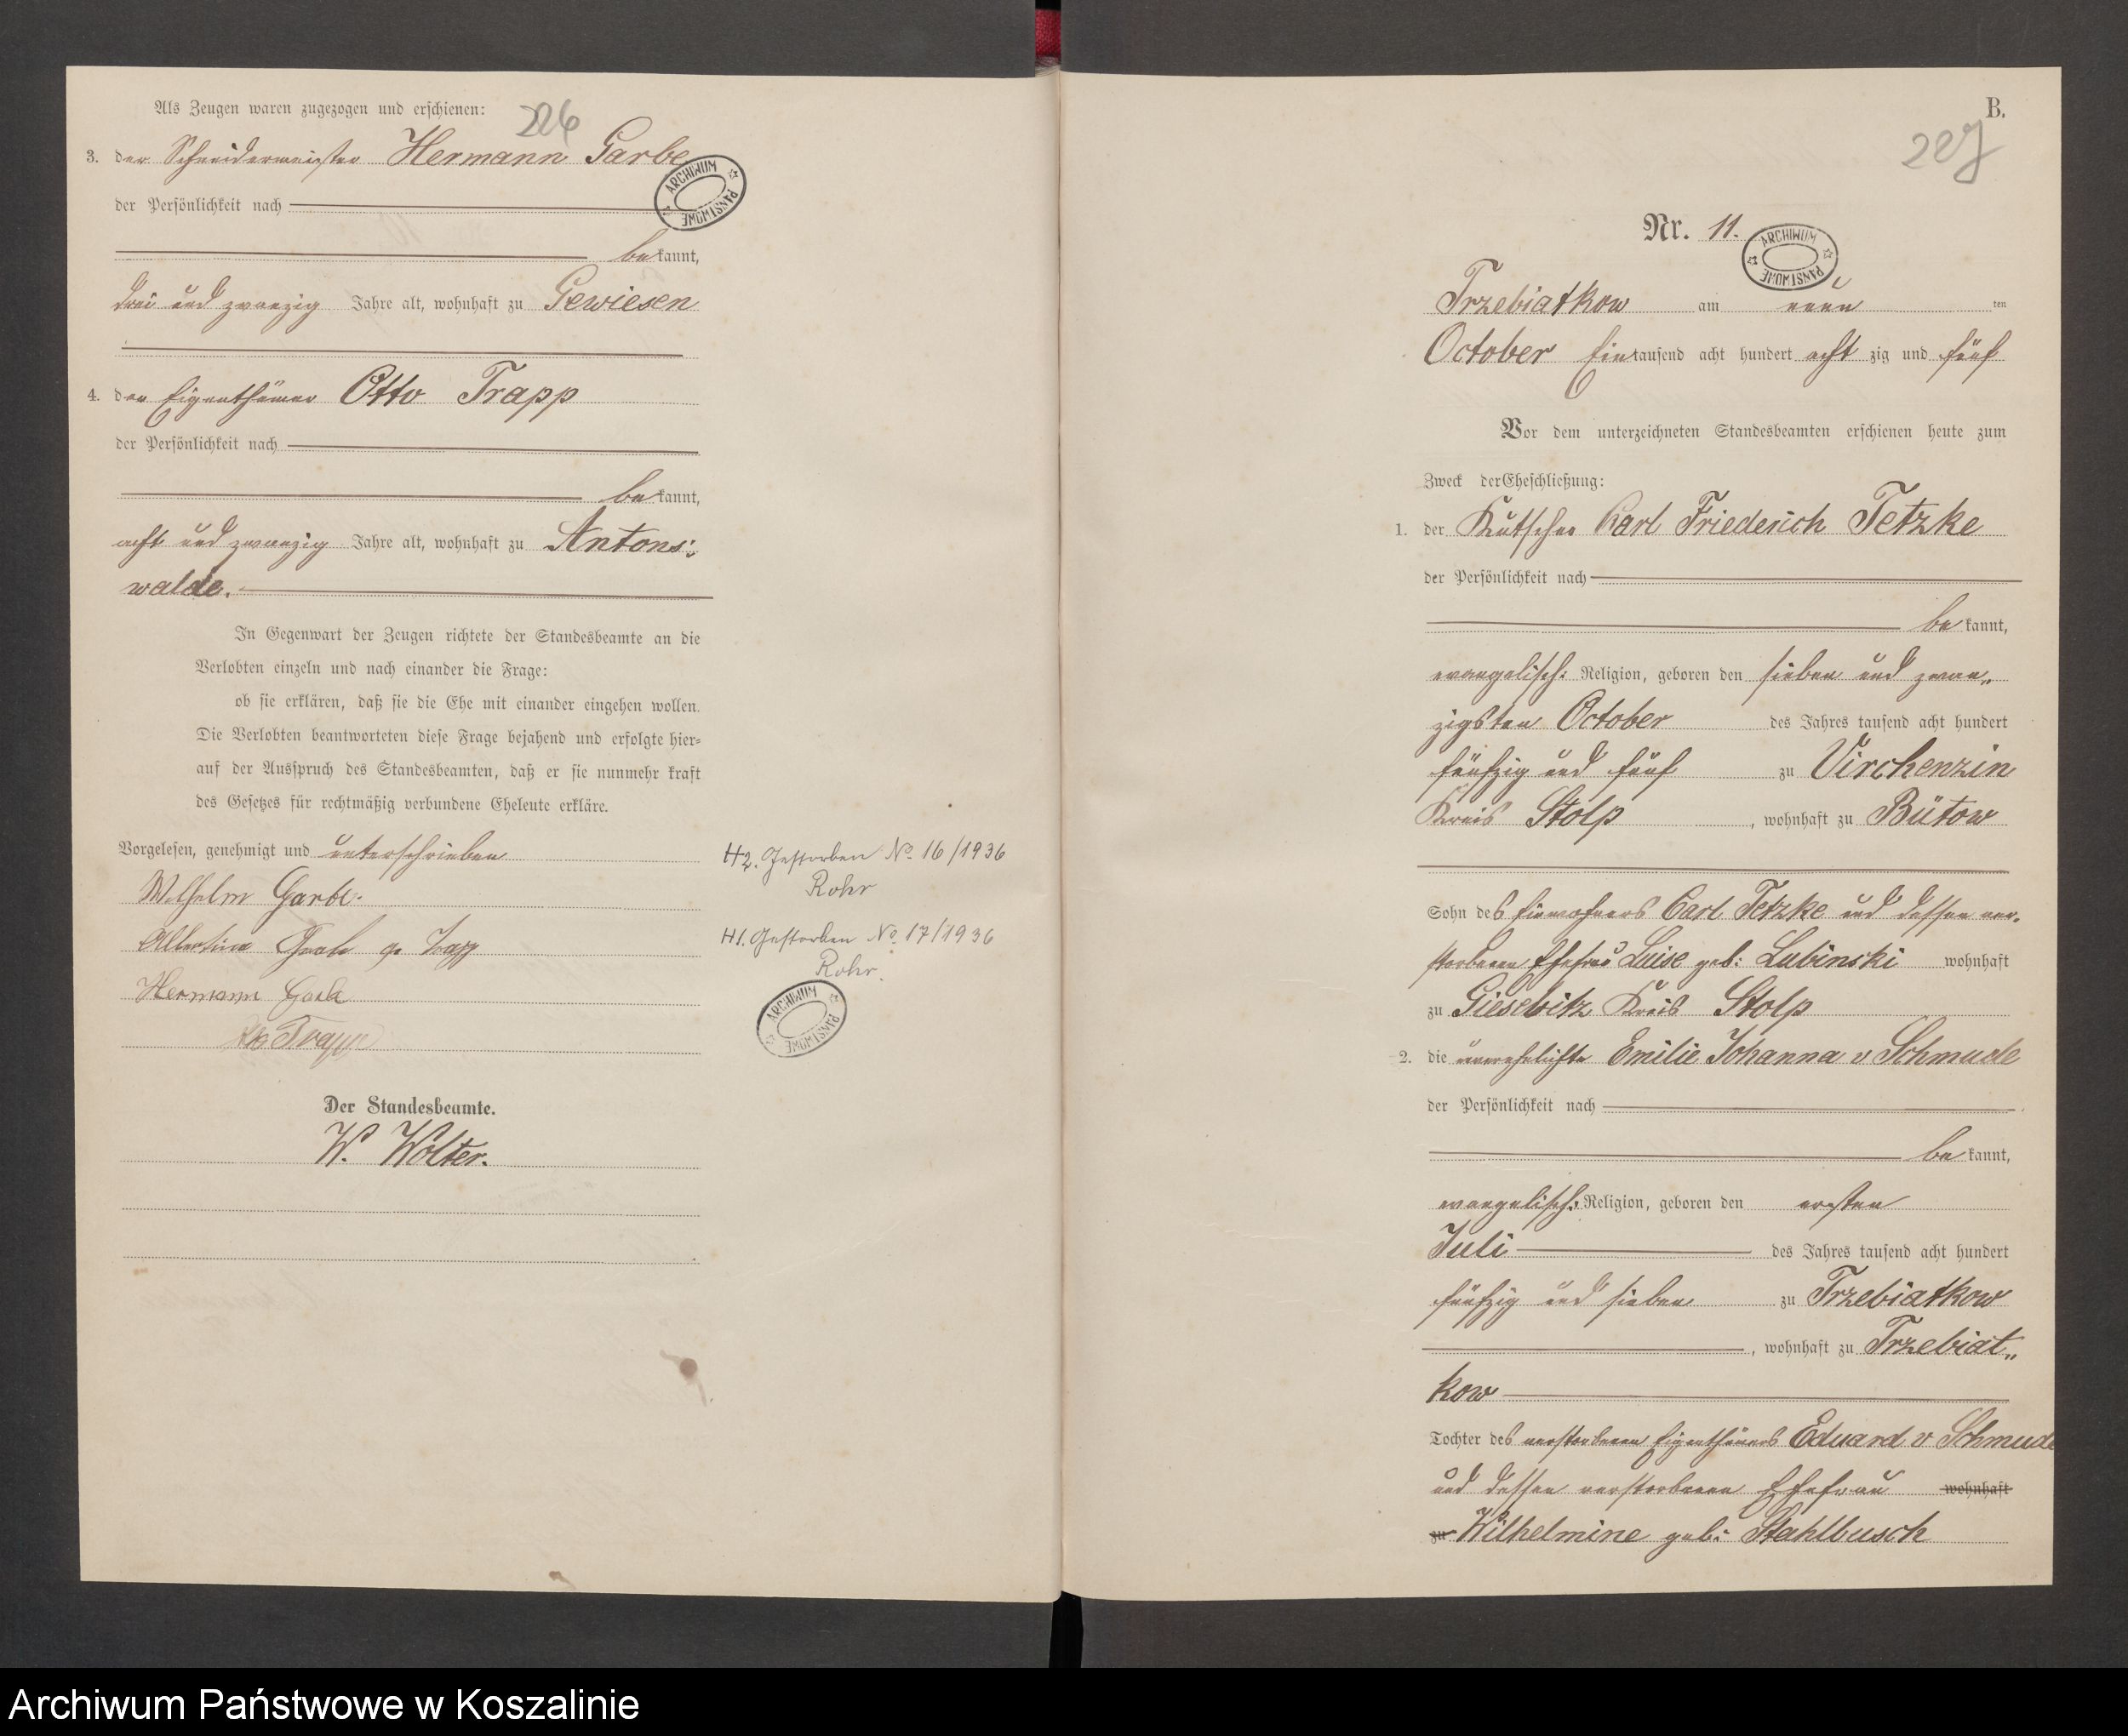 Als Zeugen waren zugezogen und erschienen:
226
3. der Schneidermeister Hermann Garbe
der Persönlichkeit nach
bekannt,
drei und zwanzig Jahre alt, wohnhaft zu Gewiesen
4. der Eigenthümer Otto Trapp
der Persönlichkeit nach
bekannt,
acht und zwanzig Jahre alt, wohnhaft zu Antons-
walde.
In Gegenwart der Zeugen richtete der Standesbeamte an die
Verlobten einzeln und nach einander die Frage:
ob sie erklären, daß sie die Ehe mit einander eingehen wollen.
Die Verlobten beantworteten diese Frage bejahend und erfolgte hier-
auf der Ausspruch des Standesbeamten, daß er sie nunmehr kraft
des Gesetzes für rechtmäßig verbundene Eheleute erkläre.
Vorgelesen, genehmigt und unterschrieben
Wilhelm Garbe.
Albertine Garbe
Hermann Garbe
Trapp
Der Standesbeamte.
W. Wolter.
H2. Gestorben No. 16/1936
Rohr
H1. Gestorben No. 17/1936
Rohr.
ARCHIWUM PAŃSTWOWE
ARCHIWUM PAŃSTWOWE
B.
227
Nr. 11.
ARCHIWUM PAŃSTWOWE
Trzebiatkow am neun ten
October Eintausend acht hundert acht zig und fünf
Vor dem unterzeichneten Standesbeamten erschienen heute zum
Zweck der Eheschließung:
1. der Kutscher Carl Friederich Tetzke
der Persönlichkeit nach
bekannt,
evangelisch: Religion, geboren den sieben und zwan„
zigsten October des Jahres tausend acht hundert
fünfzig und fünf zu Virchenzin
Kreis Stolp, wohnhaft zu Bütow
Sohn des Einwohners Carl Tetzke und dessen ver-
storbenen Ehefrau Luise geb: Lubinski wohnhaft
zu Giesebitz Kreis Stolp
2. die unverehelichte Emilie Johanna v Schmude
der Persönlichkeit nach
bekannt,
evangelisch: Religion, geboren den ersten
Juli des Jahres tausend acht hundert
fünfzig und sieben zu Trzebiatkow
, wohnhaft zu Trzebiat„
kow
Tochter des verstorbenen Eigenthümers Eduard v Schmude
und dessen verstorbenen Ehefrau wohnhaft
zu Wilhelmine geb: Stahlbusch
Archiwum Państwowe w Koszalinie